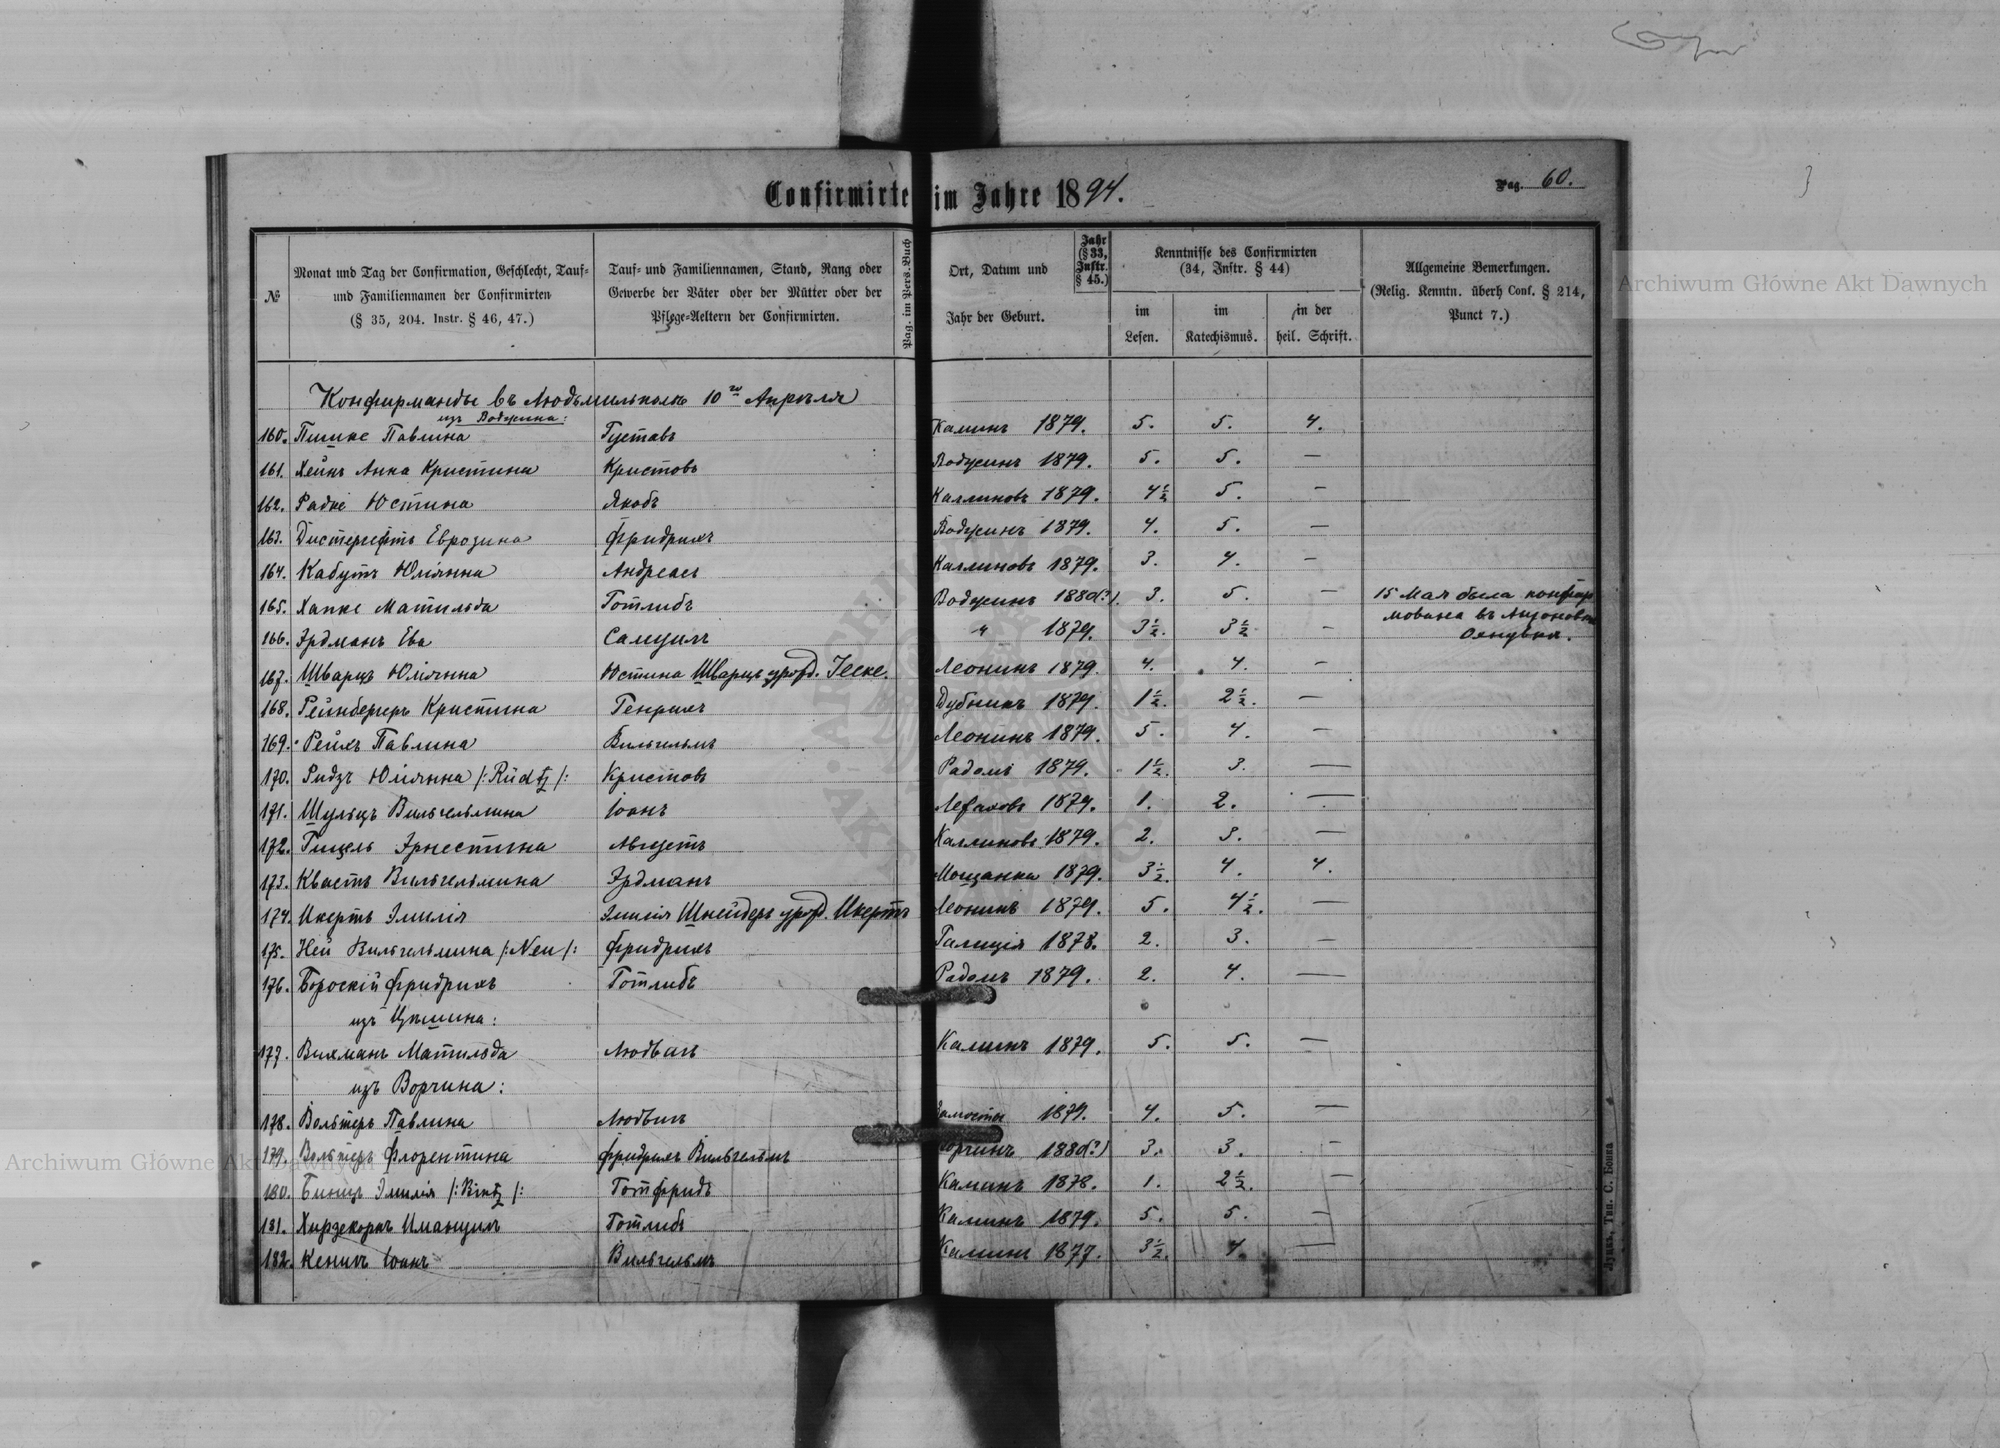 Confirmirte im Jahre 1894.
Pag. 60.
№
Monat und Tag der Confirmation, Geschlecht, Tauf- und Familiennamen der Confirmirten (§ 35, 204. Instr. § 46, 47.)
Tauf- und Familiennamen, Stand, Rang oder Gewerbe der Väter oder der Mütter oder der Pflege-Aeltern der Confirmirten.
Pag. im Pers. Buch
Ort, Datum und Jahr der Geburt.
Jahr (§ 33, Instr. § 45.)
Kenntnisse des Confirmirten (34, Instr. § 44)
im Lesen.
im Katechismus.
in der heil. Schrift.
Allgemeine Bemerkungen. (Relig. Kenntn. überh Conf. § 214, Punct 7.)
Конфирманды въ Людьмильполь 10го Апрѣля
изъ Водзина:
160. Пшике Павлина Густавъ Калинъ 1879. 5. 5. 4.
161. Хейнъ Анна Кристина Кристовъ Водзинъ 1879. 5. 5. —
162. Радке Юстина Якобъ Каллиновъ 1879. 4½ 5. —
163. Дистергефтъ Еврозина Фридрихъ Водзинъ 1879. 4. 5. —
164. Кабутъ Юліянна Андреасъ Каллиновъ 1879. 3. 4. —
165. Хапке Матильда Готлибъ Водзинъ 1880(?). 3. 5. — 15 Мая была конфир
мована въ
166. Эрдманъ Ева Самуилъ " 1879. 3½ 3½ —
167. Шварцъ Юліянна Юстина Шварцъ урожд. Іеске. Леонинъ 1879. 4. 4. —
168. Рейнбергеръ Кристина Генрихъ Дубникъ 1879. 1½. 2½. —
169. Рейхъ Павлина Вильгельмъ Леонинъ 1879. 5. 4. —
170. Ридзъ Юліянна /:Rüdtz/: Кристовъ Радомъ 1879. 1½. 3. —
171. Шульцъ Вильгельмина Іоанъ 1879. 1. 2. —
172. Гицель Эрнестина Августъ Каллиновъ 1879. 2. 3. —
173. Квастъ Вильгельмина Эрдманъ Мощанка 1879. 3½. 4. 4.
174. Икертъ Эмилія Эмилія Шнейдеръ урожд. Икертъ Леонинъ 1879. 5. 4½. —
175. Ней Вильгельмина /:Neu/: Фридрихъ Галиція 1878. 2. 3. —
176. Бороскій Фридрихъ Готлибъ Радомъ 1879. 2. 4. —
изъ Цѣшина:
177. Вихманъ Матильда Людвигъ Калинъ 1879. 5. 5. —
изъ Ворчина:
178. Вольтеръ Павлина Людвигъ 1879. 4. 5. —
179. Вольтеръ Флорентина Фридрихъ Вильгельмъ Ворчинъ 1880(?) 3. 3. —
180. Бинцъ Эмилія /:Bintz/: Готфридъ Калинъ 1878. 1. 2½. —
181. Хирзекорнъ Имануилъ Готлибъ Калинъ 1879. 5. 5. —
182. Кенигъ Іоанъ Вильгельмъ Калинъ 1877. 3½. 4. —
Луцкъ, Тип. С. Бонка
Archiwum Główne Akt Dawnych
Archiwum Główne Akt Dawnych